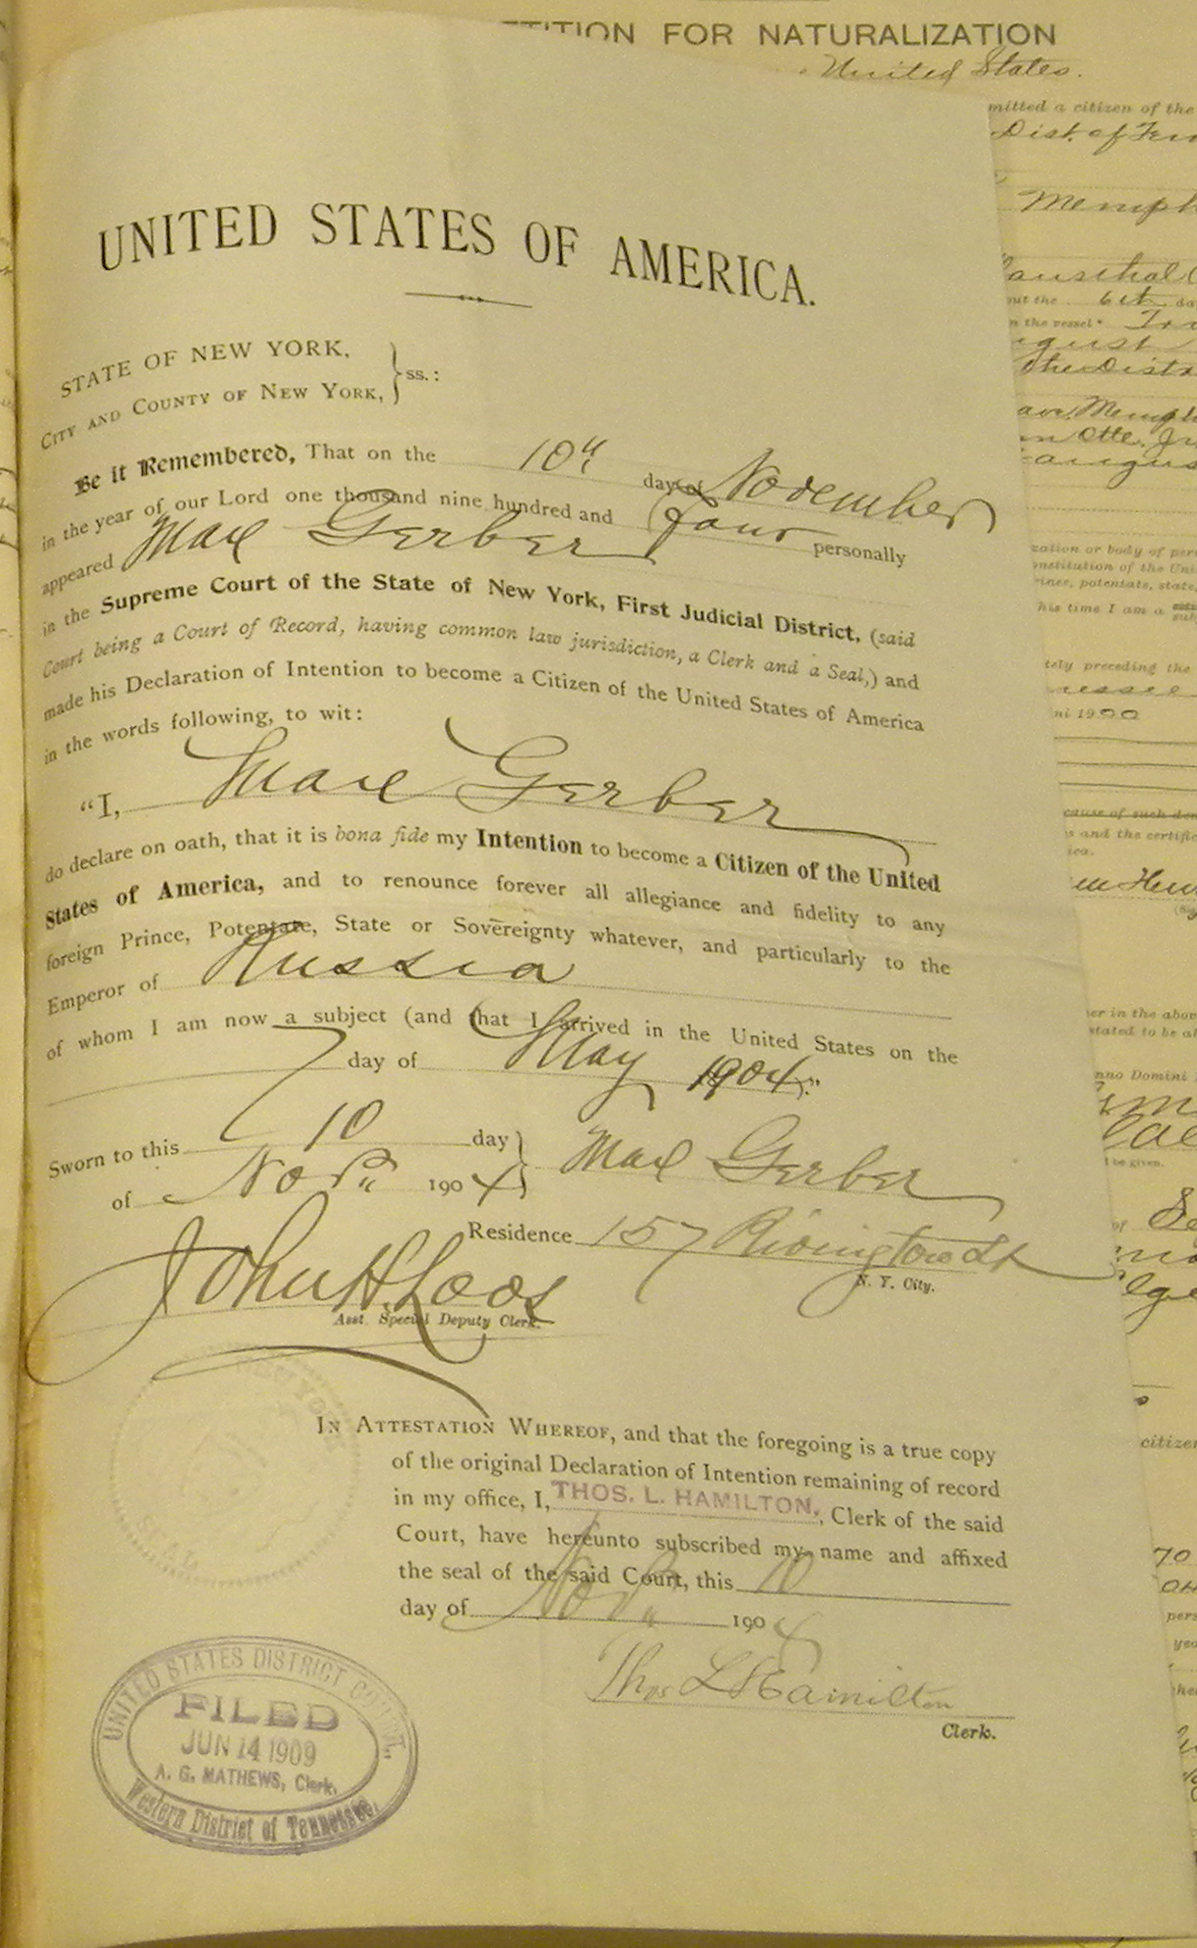 TION FOR NATURALIZATION
United States.
mitted a citizen of the
Dist. of
Memph
6th
the vessel
the Dist
ave. Memph
zation or body of per
potentate, state,
his time I am a
tely preceding the
1900
cause of such
s and the certific
er in the abov
stated to be al
nno Domini
be given.
citizen
UNITED STATES OF AMERICA.
STATE OF NEW YORK,
CITY AND COUNTY OF NEW YORK, } ss.:
Be it Remembered, That on the 10" day of November
in the year of our Lord one thousand nine hundred and four personally
appeared Max Gerber
in the Supreme Court of the State of New York, First Judicial District, (said
Court being a Court of Record, having common law jurisdiction, a Clerk and a Seal,) and
made his Declaration of Intention to become a Citizen of the United States of America
in the words following, to wit:
"I, Max Gerber
do declare on oath, that it is bona fide my Intention to become a Citizen of the United
States of America, and to renounce forever all allegiance and fidelity to any
foreign Prince, Potentate, State or Sovereignty whatever, and particularly to the
Emperor of Russia
of whom I am now a subject (and that I arrived in the United States on the
7 day of May 1904)."
Sworn to this 10 day } Max Gerber
of Nov. 1904
Residence 157 Rivington St
N. Y. City.
John H. Loos
Asst. Special Deputy Clerk.
IN ATTESTATION WHEREOF, and that the foregoing is a true copy
of the original Declaration of Intention remaining of record
in my office, I, THOS. L. HAMILTON, Clerk of the said
Court, have hereunto subscribed my name and affixed
the seal of the said Court, this 10
day of Nov. 1904
Thos L Hamilton
Clerk.
UNITED STATES DISTRICT COURT,
FILED
JUN 14 1909
A. G. MATHEWS, Clerk.
Western District of Tennessee.